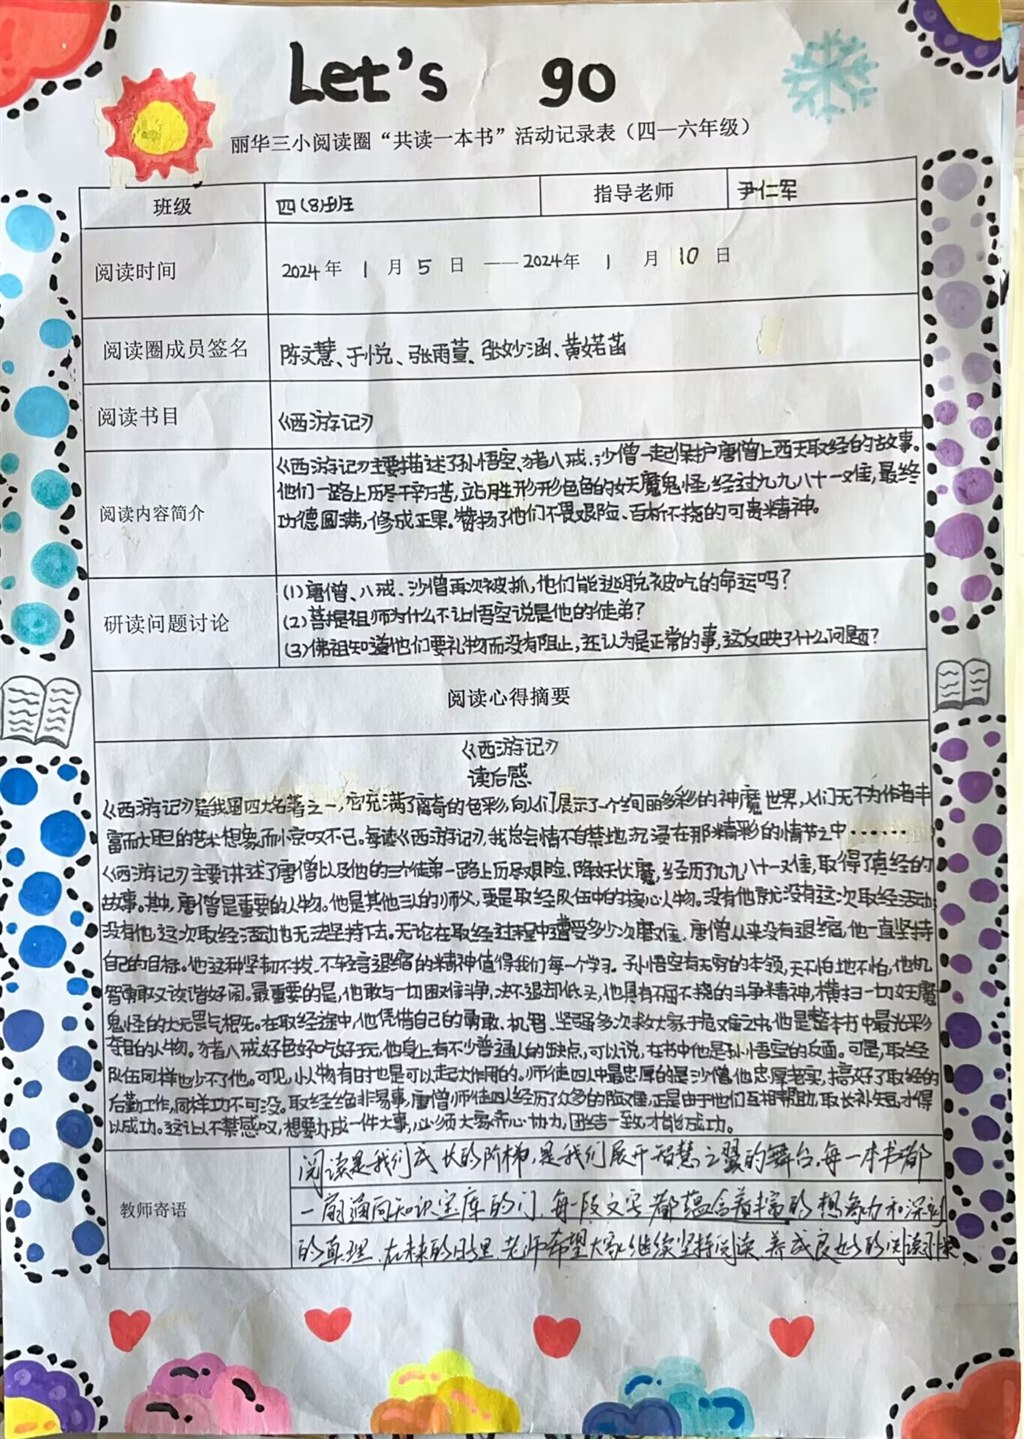 Let's go
丽华三小阅读圈“共读一本书”活动记录表（四—六年级）
班级 四（8）班 指导老师 尹仁军
阅读时间 2024年 1 月 5 日 —— 2024年 1 月 10 日
阅读圈成员签名 陈文慧、于悦、张雨萱、张妙涵、黄婼菡
阅读书目 《西游记》
阅读内容简介
《西游记》主要描述了孙悟空、猪八戒、沙僧一起保护唐僧上西天取经的故事。
他们一路上历尽千辛万苦，战胜形形色色的妖魔鬼怪，经过九九八十一难，最终
功德圆满，修成正果。赞扬了他们不畏艰险、百折不挠的可贵精神。
研读问题讨论
(1)唐僧、八戒、沙僧再次被抓，他们能逃脱被吃的命运吗？
(2)菩提祖师为什么不让悟空说是他的徒弟？
(3)佛祖知道他们要礼物而没有阻止，还认为是正常的事，这反映了什么问题？
阅读心得摘要
《西游记》
读后感
《西游记》是我国四大名著之一，它充满了离奇的色彩，向人们展示了一个绚丽多彩的神魔世界，人们无不为作者丰
富而大胆的艺术想象而惊叹不已。每读《西游记》，我总会情不自禁地沉浸在那精彩的情节之中……
《西游记》主要讲述了唐僧以及他的三个徒弟一路上历尽艰险、降妖伏魔，经历了九九八十一难，取得了真经的
故事。其中，唐僧是重要的人物。他是其他三人的师父，更是取经队伍中的核心人物。没有他就没有这次取经活动，
没有他，这次取经活动也无法坚持下去。无论在取经过程中遭受多少次磨难，唐僧从来没有退缩，他一直坚持
自己的目标。他这种坚韧不拔、不轻言退缩的精神值得我们每一个学习。孙悟空有无穷的本领，天不怕地不怕，他机
智勇敢又诙谐好闹。最重要的是，他敢与一切困难斗争，决不退却低头，他具有不屈不挠的斗争精神，横扫一切妖魔
鬼怪的大无畏气概。在取经途中，他凭借自己的勇敢、机智、坚强多次救大家于危难之中，他是整本书中最光彩
夺目的人物。猪八戒好色好吃好玩，他身上有不少普通人的缺点，可以说，在书中他是孙悟空的反面。可是，取经
队伍同样也少不了他。可见，小人物有时也是可以起大作用的。师徒四人中最忠厚的是沙僧，他忠厚老实，搞好了取经的
后勤工作，同样功不可没。取经绝非易事，唐僧师徒四人经历了众多的险难，正是由于他们互相帮助，取长补短，才得
以成功。这让人不禁感叹，想要办成一件大事，必须大家齐心协力，团结一致，才能成功。
教师寄语
阅读是我们成长的阶梯，是我们展开智慧之翼的舞台，每一本书都
一扇通向知识宝库的门，每一段文字都蕴含着丰富的想象力和深刻
的真理，在未来的日子里，老师希望大家继续坚持阅读，养成良好的阅读习惯